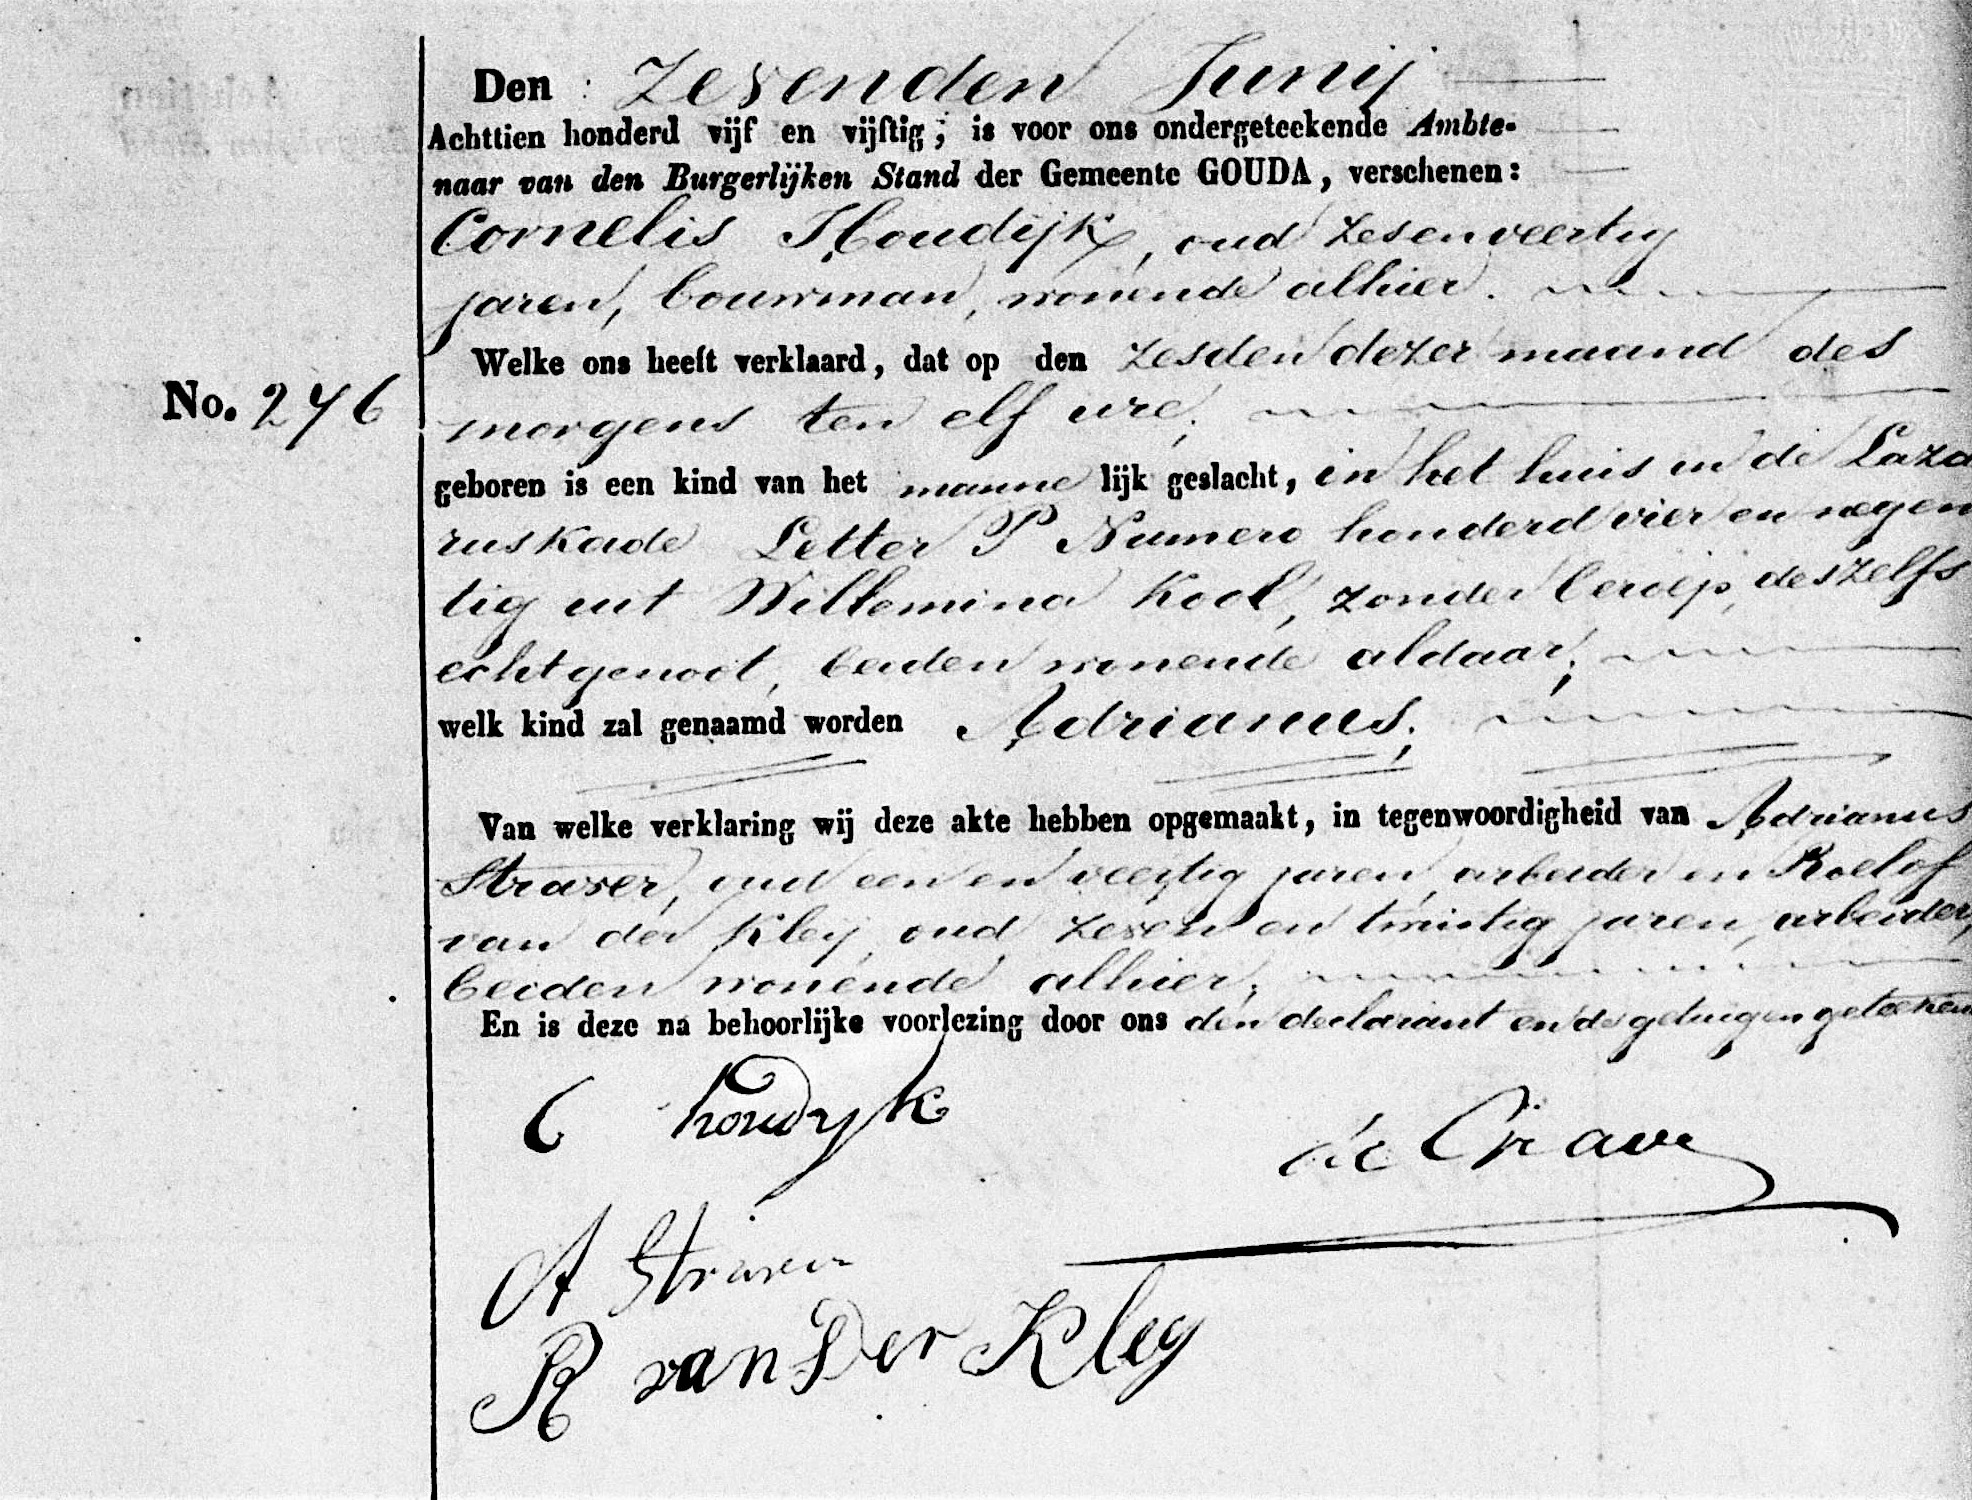 Den Zevenden Junij
Achttien honderd vijf en vijftig, is voor ons ondergeteekende Ambte-
naar van den Burgerlijken Stand der Gemeente GOUDA, verschenen:
Cornelis Houdijk, oud zesenveertig
jaren, bouwman, wonende alhier.
Welke ons heeft verklaard, dat op den zesden dezer maand des
No. 276
morgens ten elf ure,
geboren is een kind van het manne lijk geslacht, in het huis in de Laza
ruskade Letter P Numero honderd vier en negen
tig uit Willemina Kool, zonder beroep, deszelfs
echtgenoot, beiden wonende aldaar;
welk kind zal genaamd worden Adrianus;
Van welke verklaring wij deze akte hebben opgemaakt, in tegenwoordigheid van Adrianus
Straver, oud een en veertig jaren, arbeider en Roelof
van der Kleij, oud zeven en twintig jaren, arbeider,
beiden wonende alhier;
En is deze na behoorlijke voorlezing door ons den declarant en de getuigen geteekend
C houdyk
A Straver
R van Der Kley